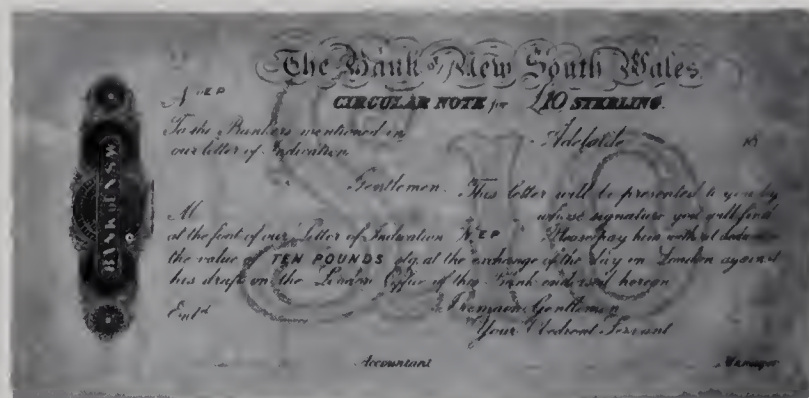 The Bank of New South Wales.
CIRCULAR NOTE for £10 STERLING.
To the Bankers mentioned in
our letter of Indication
Adelaide 18
Gentlemen. This letter will be presented to you by
M whose signature you will find
at the foot of our Letter of Indication Please pay him without deduction
the value of TEN POUNDS stg. at the exchange of the day on London against
his draft on the London Office of this Bank endorsed hereon
I remain Gentlemen
Your Obedient Servant
Entd
Accountant Manager
BANK OF N.S.W.
£10